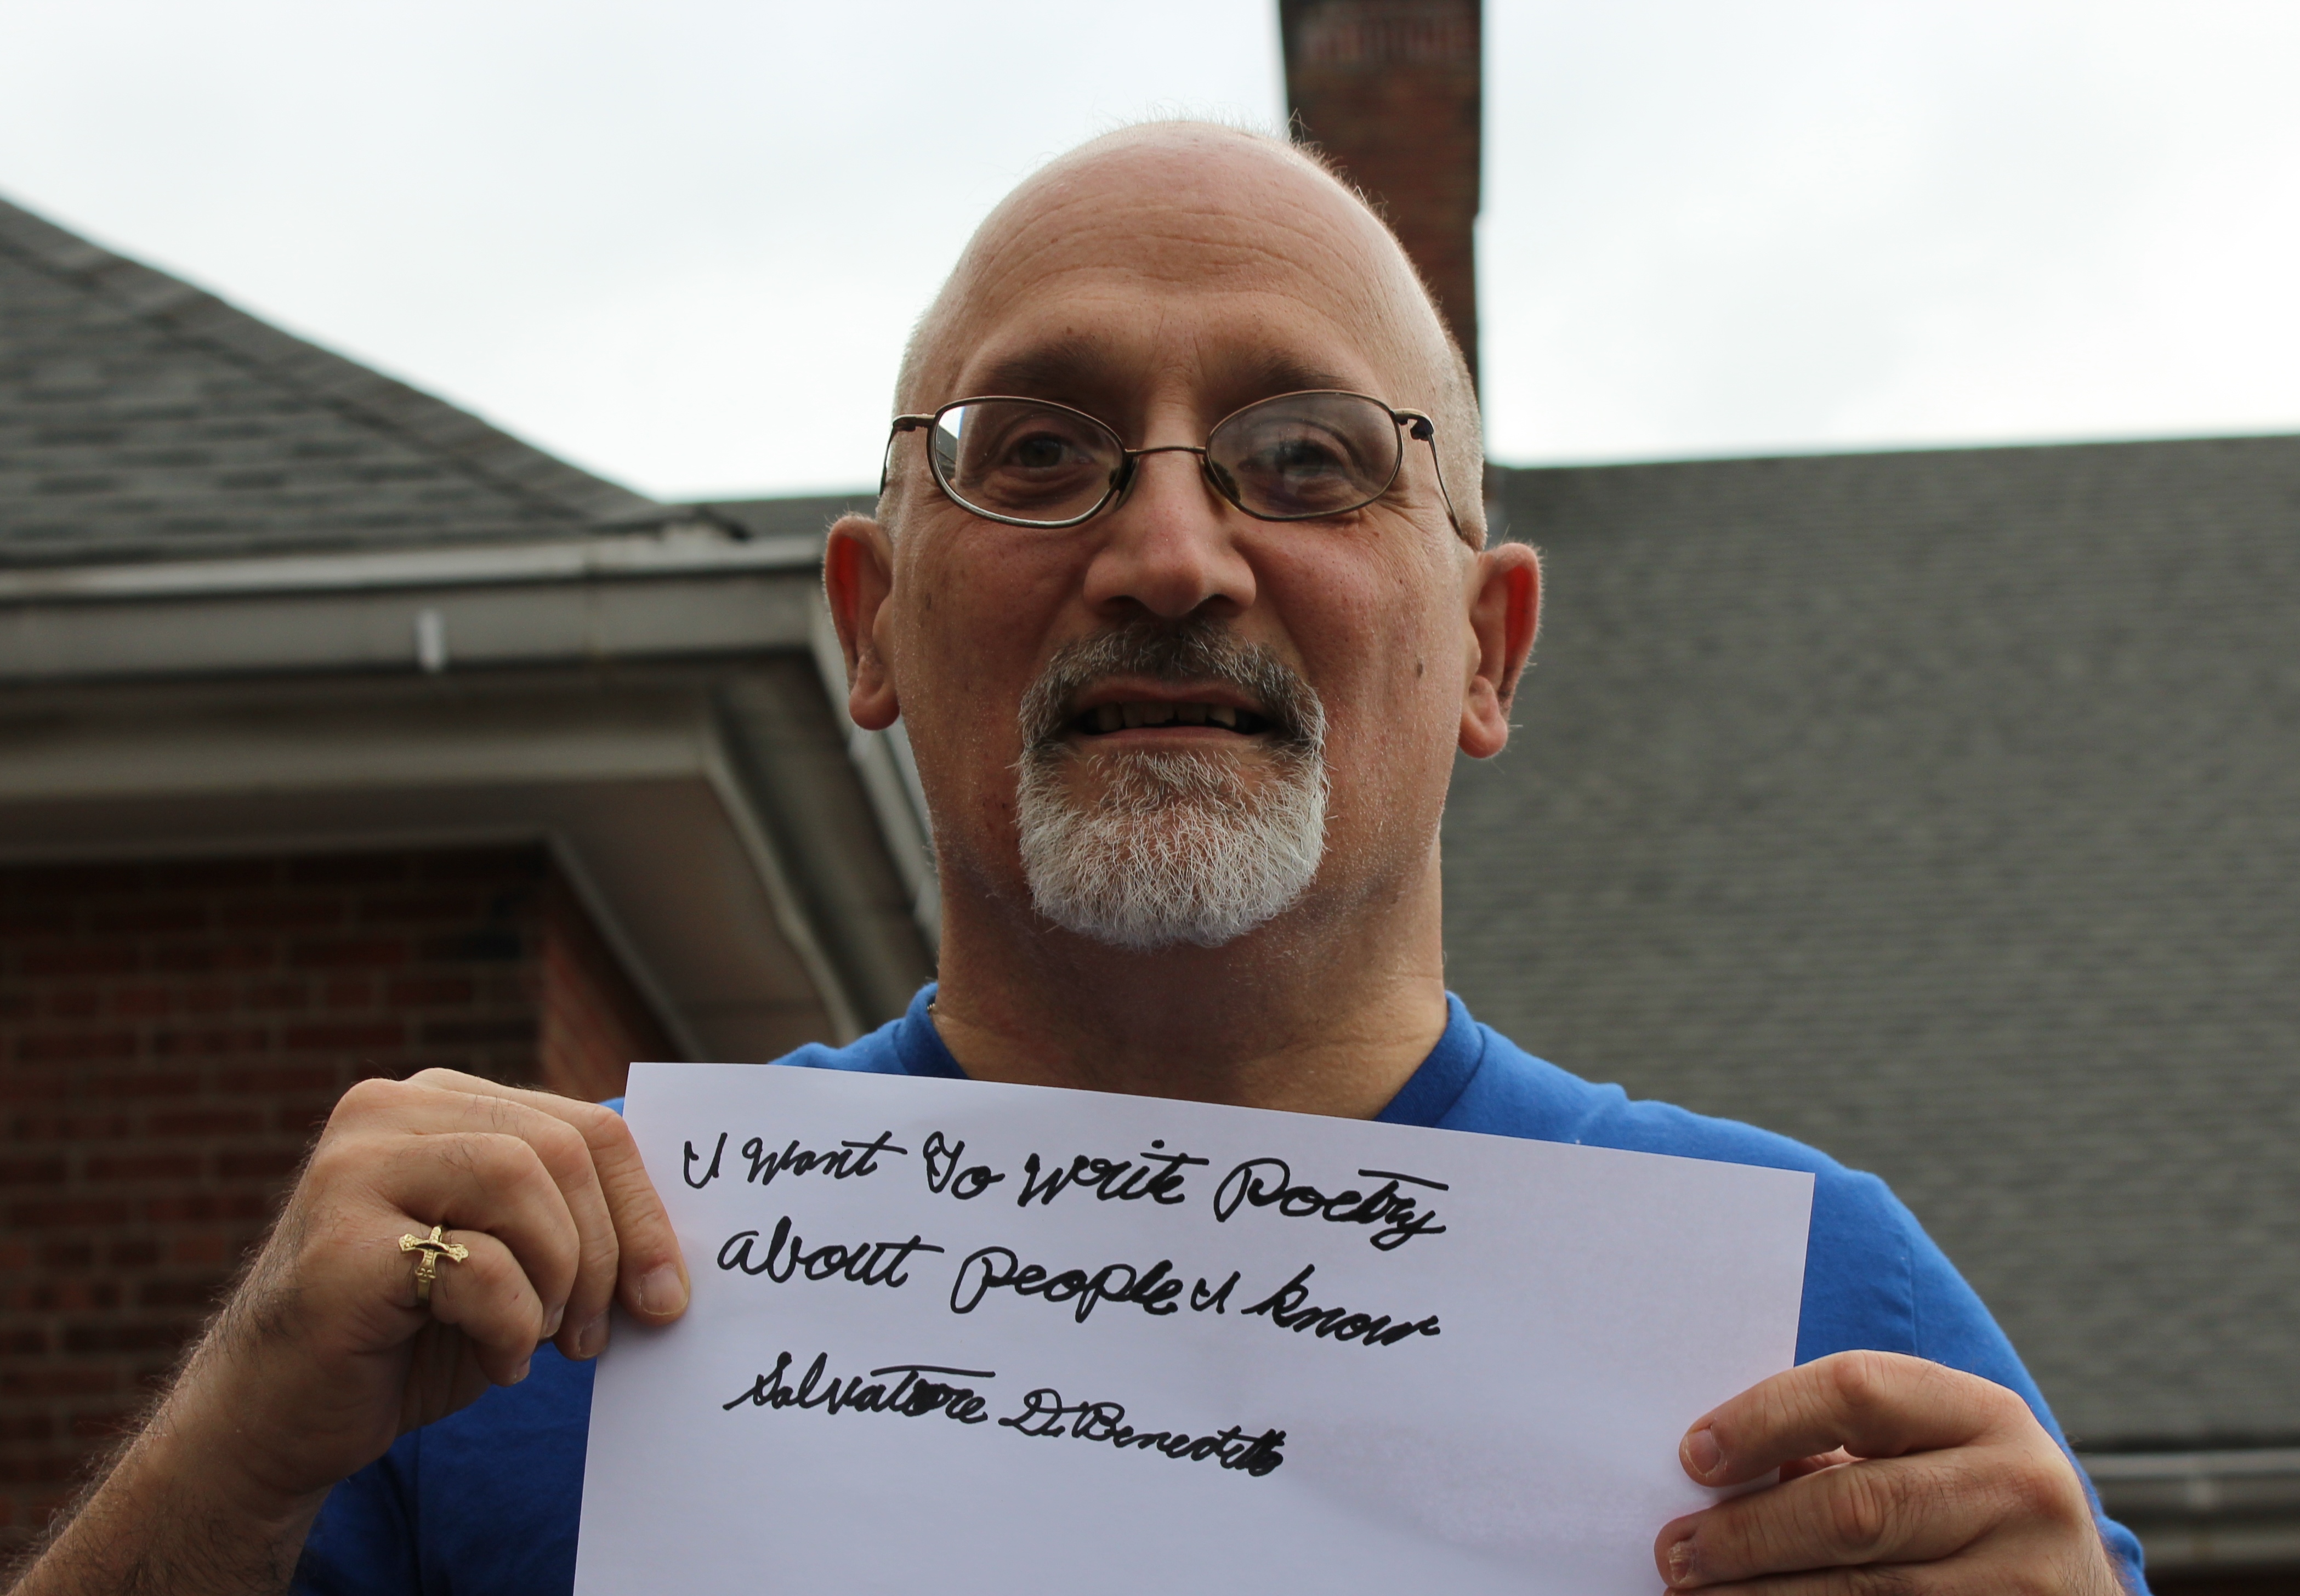 I Want To Write Poetry
about People I know
Salvatore DiBenedetto